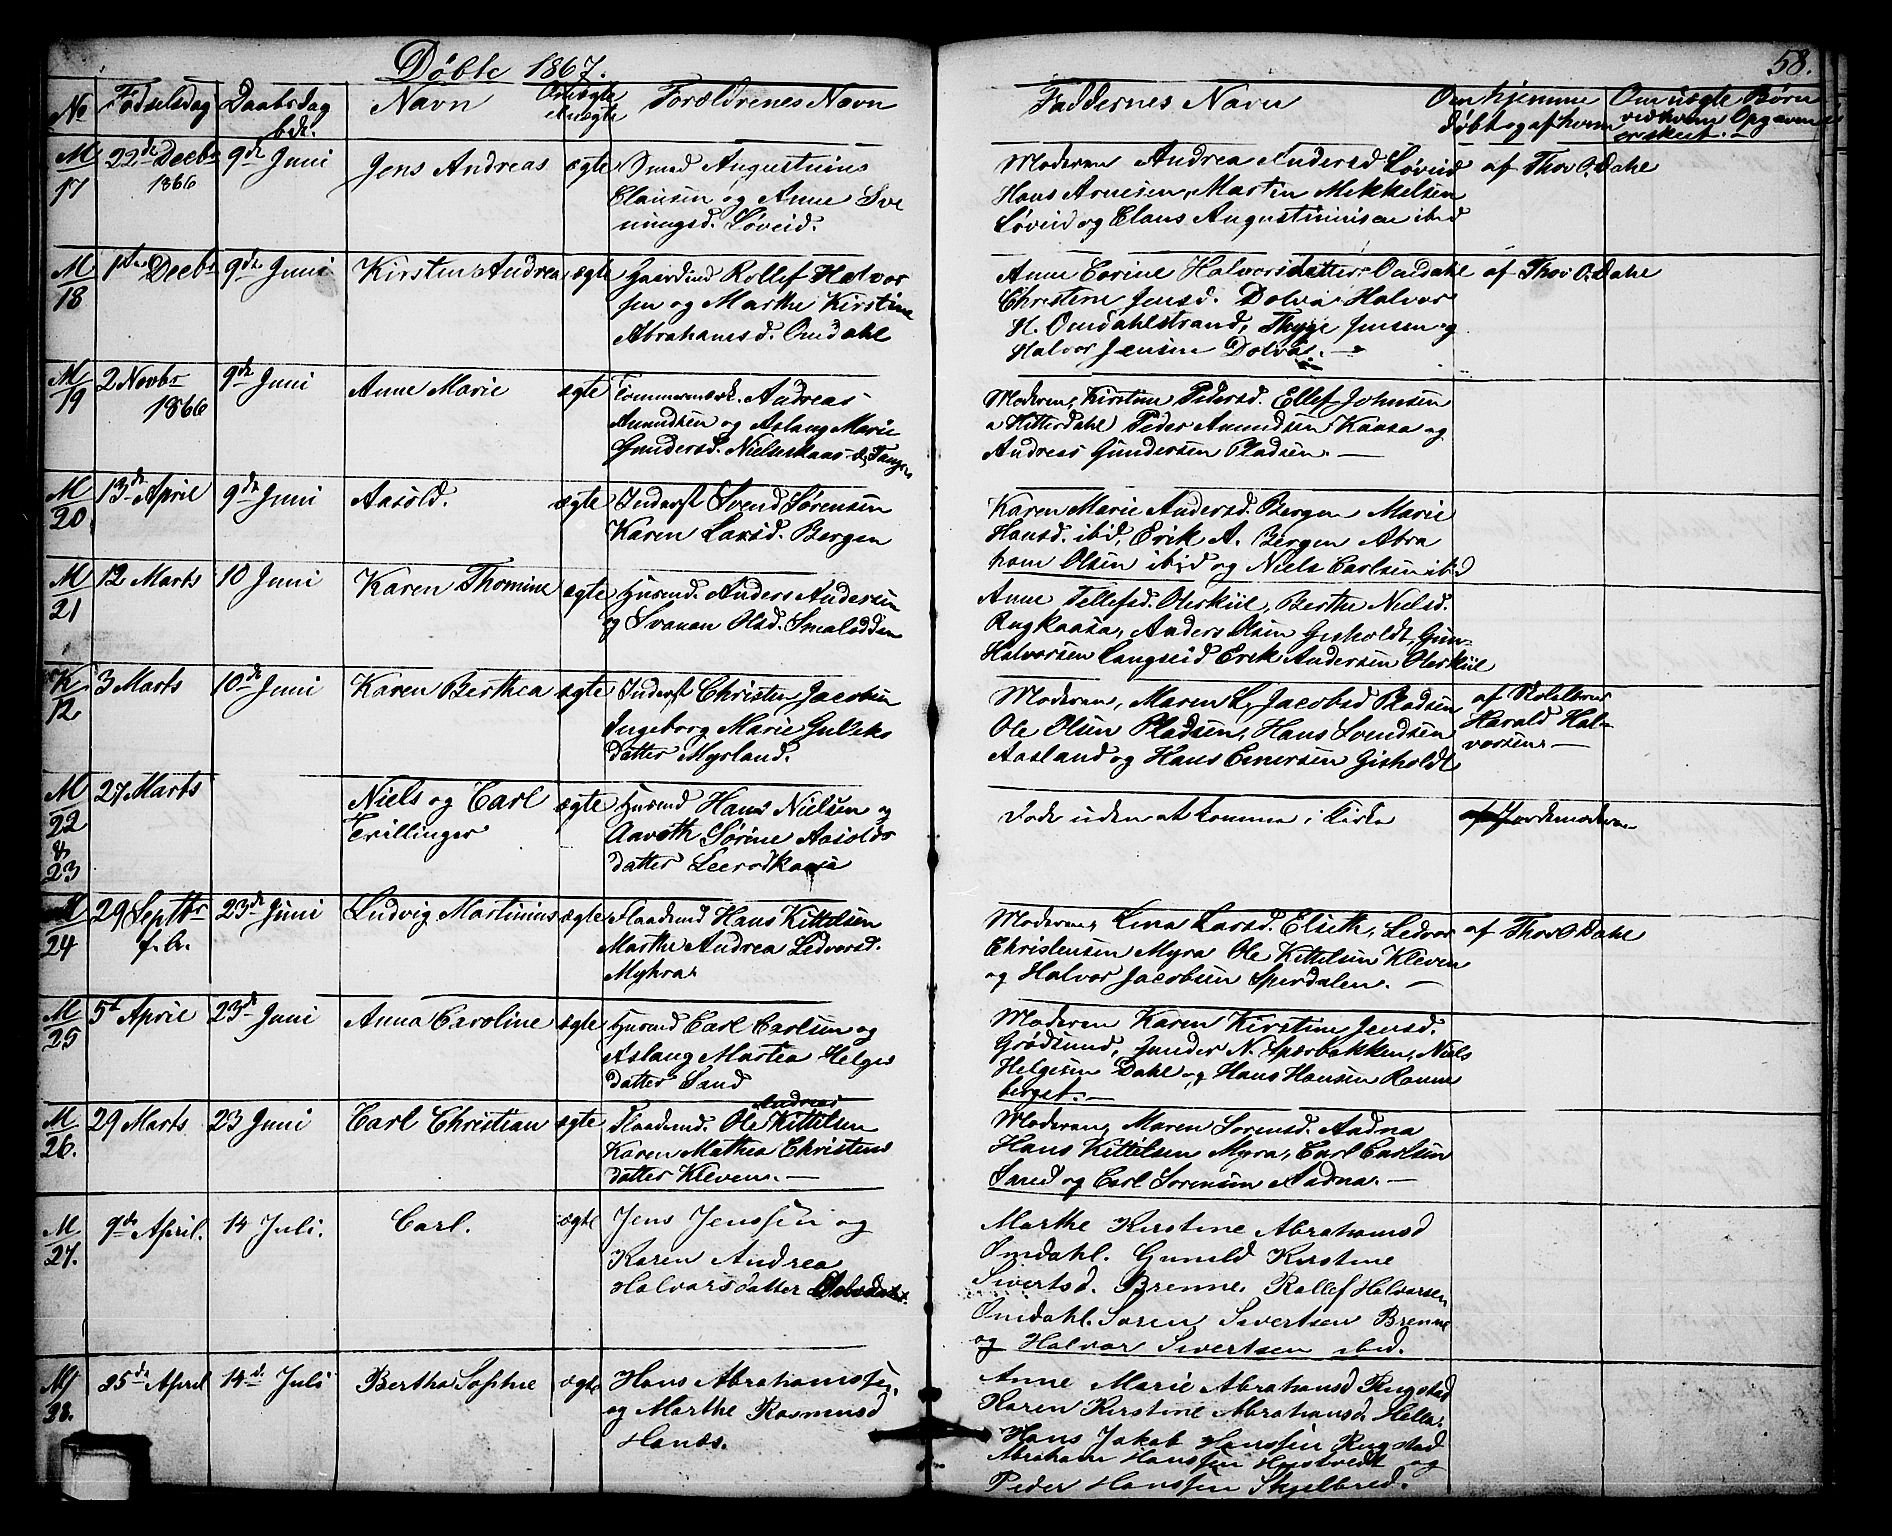 58.
Døbte 1867.
No Fødselsdag Daabsdag Navn Forældrenes Navn
Faddernes Navn Om hjemme døbt og af hvem
M 17 22de Decbr 1866 9de Juni Jens Andreas ægte Smed Augustinius
Clausen og Anne Sve
ningsd. Løveid.
Moderen Andrea Andersd Løveid af Thov O. Dahl
Hans Arnesen, Martin Mikkelsen
Løveid og Claus Augustinnisen ibid
M 18 1ste Decbr 9de Juni Kirstine Andrea ægte Gaardmd Rollef Halvor
sen og Marthe Kirstine
Abrahamsd. Omdahl
Anne Corine Halvorsdatter Omdahl af Thov O. Dahl
Christine Jensd. Dolva Halvor
H. Omdahlstrand, Thyge Jensen og
Halvor Jensen Dolva. —
M 19 2 Novbr 1866 9de Juni Anne Marie ægte Tømmermæsk. Andreas
Amundsen og Aslaug Marie
Gundersd. Nielsekaas
Moderen, Kirstine Pedersd. Ellef Johnsen
a Hitterdahl Peder Amundsen Kaasa og
Andreas Gundersen Pladsen. —
M 20 13de April 9de Juni Aasold. ægte Inderst Svend Sørensen
Karen Larsd. Bergen
Karen Marie Andersd. Bergen Marie
Hansd. ibid, Erik A. Bergen Abra
ham Olsen ibid og Niels Carlsen ibid
M 21 12 Marts 10 Juni Karen Thomine ægte Husmd. Anders Andersen
og Svanau Olsd. Smalsdden
Anne Tellefsd. Oterkiil, Berthe Nielsd.
Rugkaasa, Anders Olsen Gisholdt, Gun
Halvorsen Langseid Erik Andersen Oterkiil
K 12 3 Marts 10de Juni Karen Berthea ægte Inderst Christen Jacobsen
Ingeborg Marie Guleks
datter Myrland.
Moderen, Maren L. Jacobsd Pladsen af Skolelærer
Ole Olsen Pladsen, Hans Svendsen Harald Hal-
Aasland og Hans Einersen Gisholdt vorsen. —
M 22 & 23 27 Marts Niels og Carl ægte Husmd Hans Nielsen og
Tvillinger Aaroth Sørine Aasolds
datter Leerodkaasa
Døde uden at komme i Kirke af Jordemoderen
M 24 29 Septbr f. a. 23de Juni Ludvig Martinius ægte Flaadmd Hans Kittelsen
Marthe Andrea Ledvorsd.
Myhra
Moderen, Lena Larsd. Elseth, Ledvor af Thov O. Dahl
Christensen Myra Ole Kittelsen Kleven
og Halvor Jacobsen Sperdalen. —
M 25 5te April 23de Juni Anna Caroline ægte Husmd Carl Carlsen og
Aslaug Martea Helges
datter Sand
Moderen Karen Kirstine Jensd.
Grødsund, Gunder N. Spærbakken, Niels
Helgesen Dahl og Hans Hansen Ramm
berget. —
M 26. 29 Marts 23 Juni Carl Christian ægte Flaadmd. Ole Andreas Kittelsen
Karen Mathea Christens
datter Kleven. —
Moderen, Maren Sorensd. Aadna
Hans Kittelsen Myra, Carl Carlsen
Sand og Carl Sorensen Aadna. —
M 27. 9de April. 14 Juli. Carl. ægte Jens Jenssen og
Karen Andrea
Halvorsdatter
Marthe Kirstine Abrahamsd
Omdahl. Gunild Kirstine
Sivertsd. Brenne, Rollef Halvorsen
Omdahl. Soren Sivertsen Brenne
og Halvor Sivertsen ibid.
M 28. 25de April 14de Juli Bertha Sophie ægte Hans Abrahamssen,
og Marthe Rasmusd
Hanæs.
Anne Marie Abrahamsd Rugstad
Karen Kirstine Abrahamsd. Hella.
Hans Jakob Hanssen Rugstad
Abraham Hanssen Hustvedt og
Peder Hanssen Skjelbred.